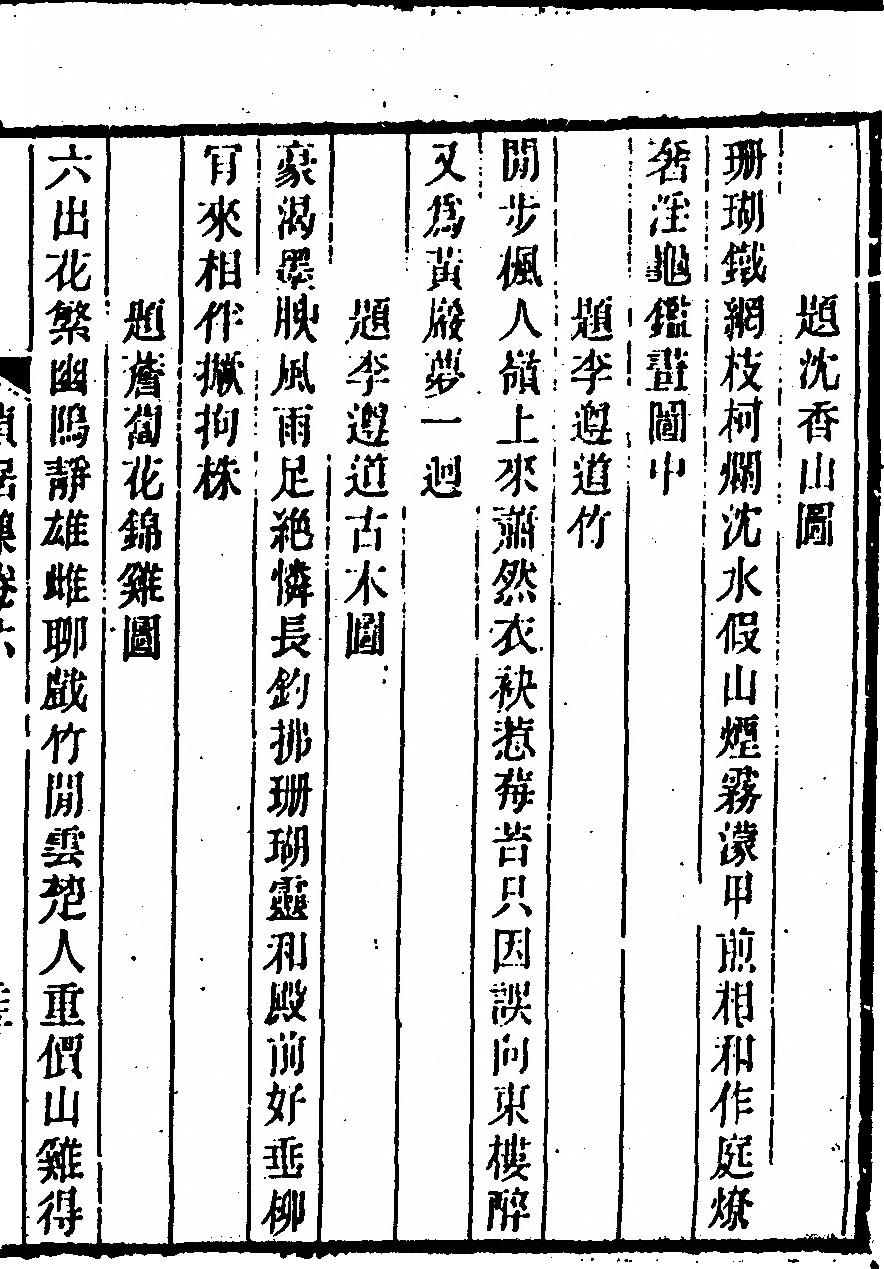 題沈香山圖
珊瑚鐵網枝柯爛沈水假山煙霧濛甲煎相和作庭燎
奢淫龜鑑畫圖中
題李遵道竹
閒步楓人嶺上來蕭然衣袂惹莓苔只因誤向東樓醉
又為黃巖夢一迴
題李遵道古木圖
豪渴墨腴風雨足絶憐長釣拂珊瑚靈和殿前好垂柳
肎來相作橛拘株
題薝蔔花錦雞圖
六出花繁幽鳴靜雄雌聊戲竹閒雲楚人重價山雞得
貞居集卷六